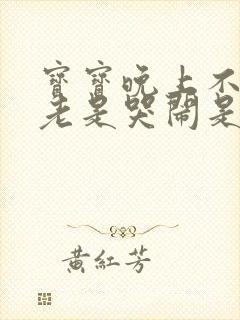 寶寶晚上不
老是哭鬧是
黃紅芳